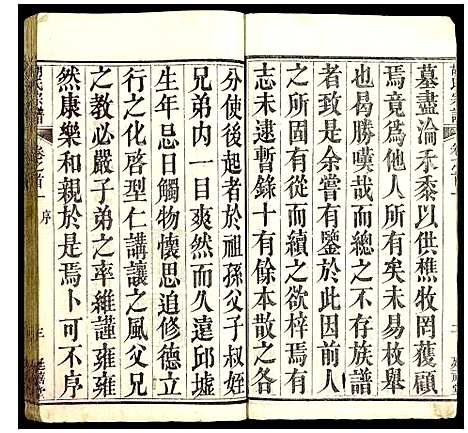 墓盡淪禾黍以供樵牧罔獲顧
焉竟爲他人所有矣未易枚舉
也曷勝嘆哉而總之不存族譜
者致是余嘗有鑒於此因前人
之所固有從而續之欲梓焉有
志未逮暫錄十有餘本散之各
分使後於祖孫父子叔姪
兄弟内一目爽然而久遠邱墟
生年忌日觸物懷思追修德立
行之化啓型仁講讓之風父兄
之教必嚴子弟之率維謹雍雍
然康樂和親於是焉卜可不序
胡氏宗譜
卷之首
序
三